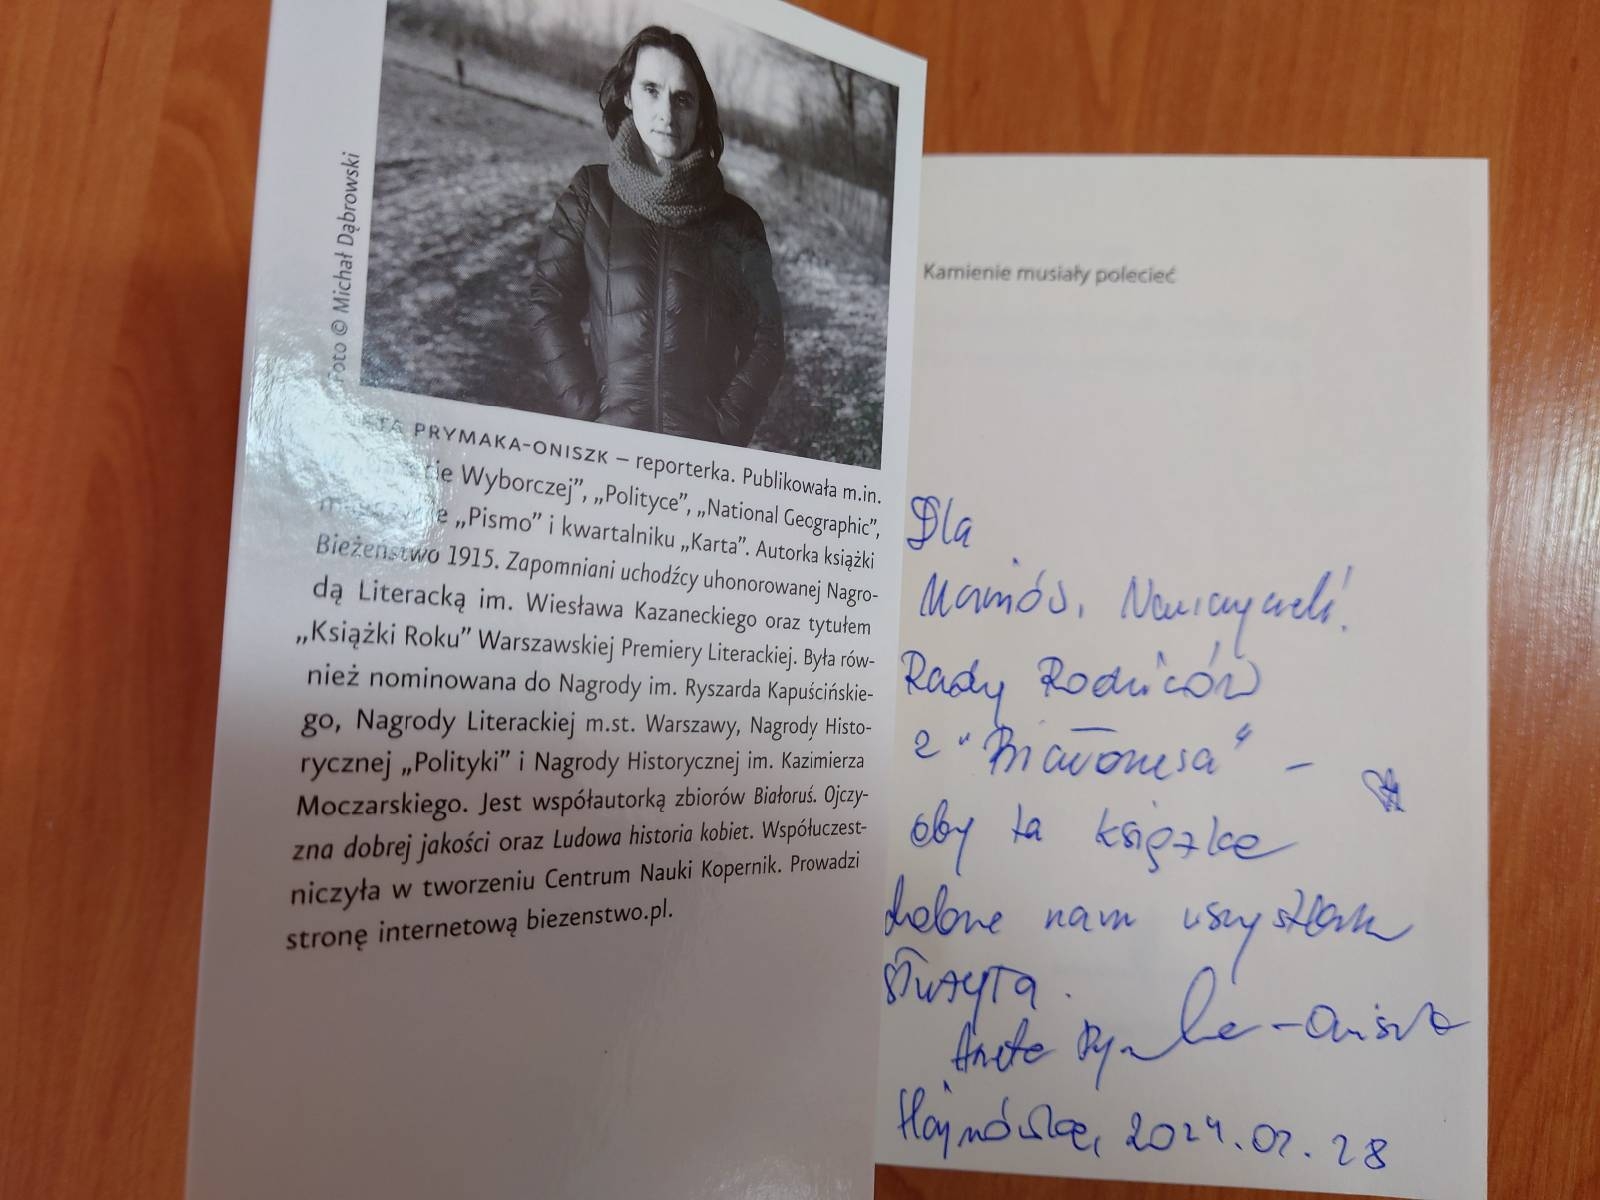 Foto © Michał Dąbrowski
PRYMAKA-ONISZK – reporterka. Publikowała m.in.
Wyborczej”, „Polityce”, „National Geographic”,
„Pismo” i kwartalniku „Karta”. Autorka książki
Bieżeństwo 1915. Zapomniani uchodźcy uhonorowanej Nagro-
dą Literacką im. Wiesława Kazaneckiego oraz tytułem
„Książki Roku” Warszawskiej Premiery Literackiej. Była rów-
nież nominowana do Nagrody im. Ryszarda Kapuścińskie-
go, Nagrody Literackiej m.st. Warszawy, Nagrody Histo-
rycznej „Polityki” i Nagrody Historycznej im. Kazimierza
Moczarskiego. Jest współautorką zbiorów Białoruś. Ojczy-
zna dobrej jakości oraz Ludowa historia kobiet. Współuczest-
niczyła w tworzeniu Centrum Nauki Kopernik. Prowadzi
stronę internetową biezenstwo.pl.
Kamienie musiały polecieć
Dla
Rady Rodziców
z
aby ta książka
nam wszystkim
służyła.
Aneta Prymaka-Oniszk
Hajnówka, 2024.02.28